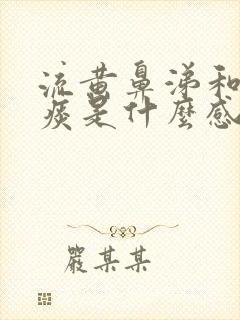 流黄鼻涕和
痰是什麼感
嚴某某